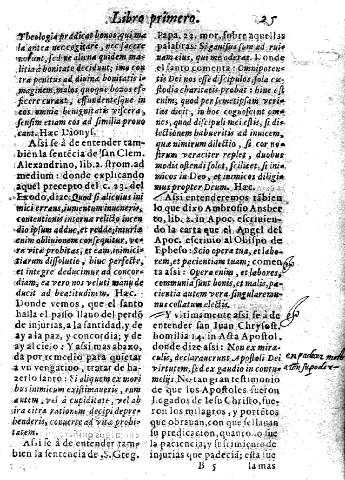 Libro primero. 25
Theologia prædicat bonos, qui ma
la antea nec cogitare, nec facere
nossunt, sed ne aliena quidem ma-
litia à bonitate deiiciunt; imo con
tra penitus ad diuina bonitatis i-
maginem, malos quoque bonos ef-
ficere curant, effundentesque in
eos omnis benignitatis viscera,
sensim etiam eos ad similia prouo
cant. Hæc Dionys.
Assi se à de entender tam-
bien la sentẽcia de san Clem.
Alexandrino, lib. 2. strom. ad
medium: donde explicando
aquel precepto del c. 23. del
Exodo, dize. Quod si alicuius ini
mici errans, iumentum inuenerit,
contentionis interna relicto iucen
dio ipsum adduc, et redde, iniuria
enim obliuionem consequitur, ve-
ra vitæ probitas, et eam, inimici-
tiarum dissolutio, hinc perfecte,
et integre deducimur ad concor-
diam, ea vero nos veluti manu de
ducit ad beatitudinem. Hæc.
Donde vemos, que el santo
halla el passo llano del perdõ
de injurias, a la santidad, y de
ay a la paz, y concordia; y de
ay al cielo: Y assi mas abaxo,
da por remedio para quietar
a vn vengatiuo, tratar de ha-
zerlo santo: Si aliquem ex mori
bus inimicum existimaueris, eum
autem, vel à cupiditate, vel ab
ira citra rationem decipi depre-
henderis, conuerte ad vitæ probi-
tatem.
Assi se à de entender tam-
bien la sentencia de, S. Greg.
Papa, 22. mor. sobre aquellas
palabras: Si gauisus sum ad rui-
nam eius, qui me oderat. Donde
el santo comenta: Omnipoten-
tis Dei nos esse discipulos, sola cu-
stodia charitatis probat: hinc est
enim, quod per semetipsam veri-
tas dicit, in hoc cognoscent om-
nes, quod discipuli mei estis, si di-
lectionem habueritis ad inuicem,
quæ nimirum dilectio, si cor no-
strum veraciter replet, duobus
modis ostendi solet, scilicet, si ini-
micos in Deo, et inimicos diligi-
mus propter Deum. Hæc.
Assi entenderemos tãbien
lo que dixo Ambrosio Ansber
to, lib. 2. in Apoc. escriuien-
do la carta que el Angel del
Apoc. escriuio al Obispo de
Epheso: Scio opera tua, et labo-
rem, et patientiam tuam; comen
ta assi: Opera enim, et labores,
communia sunt bonis, et malis, pa-
cientia autem vera, singularemu-
nus collatum electis.
Y vltimamente assi se à de
entender san Iuan Chrysost.
homilia 14. in Acta Apostol.
donde dize assi: Non ex mira-
culis, declarauerunt Apostoli Dei
virtutem, sed ex gaudio in contu-
melijs. No tan gran testimonio
de que los Apostoles fueron
legados de Iesu Christo, fue-
ron los milagros, y portẽtos
que obrauan, con que sellauan
so predicacion, quanto lo fue
la paciencia, y sufrimiento de
injurias que padecia; esta fue
B 5 la mas